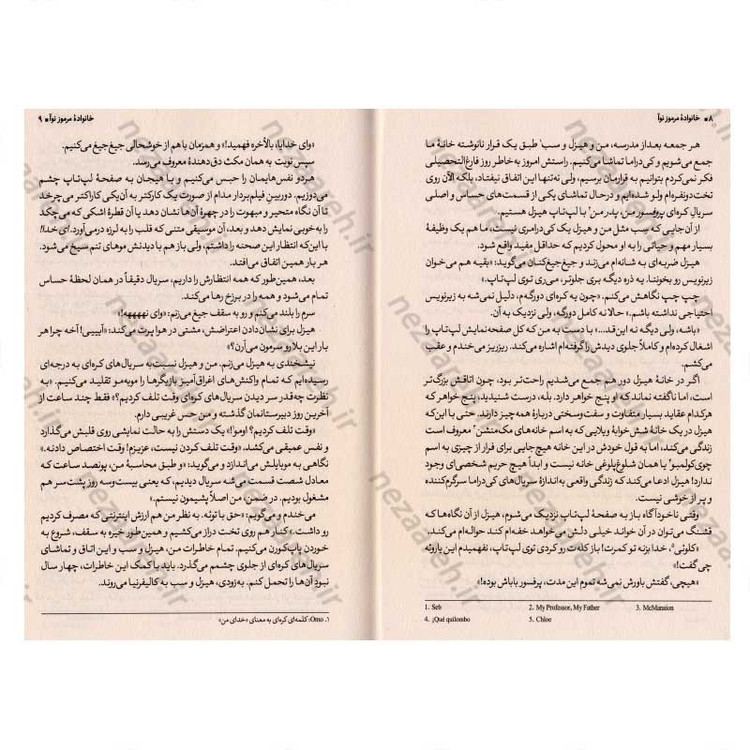 ۸ خانوادهٔ مرموز نوآ
هر جمعه بعد از مدرسه، من و هیزل و سب¹ طبق یک قرار نانوشته خانهٔ ما
جمع می‌شویم و کی‌دراما تماشا می‌کنیم. راستش امروز به خاطر روز فارغ‌التحصیلی
فکر نمی‌کردم بتوانیم به قرارمان برسیم، ولی نه‌تنها این اتفاق نیفتاد، بلکه الآن روی
تخت دونفره‌ام ولو شده‌ایم و درحال تماشای یکی از قسمت‌های حساس و اصلی
سریال کره‌ای پروفسور من، پدر من² با لپ‌تاپ هیزل هستیم.
از آن‌جایی که سب مثل من و هیزل یک کی‌درامری نیست، ما هم یک وظیفهٔ
بسیار مهم و حیاتی را به او محول کردیم که حداقل مفید واقع شود.
هیزل ضربه‌ای به شانه‌ام می‌زند و جیغ‌جیغ‌کنان می‌گوید: «بقیه هم می‌خوان
زیرنویس رو بخونن! یه ذره دیگه بری جلوتر، می‌ری توی لپ‌تاپ.»
چپ چپ نگاهش می‌کنم. «چون یه کره‌ای دورگه‌م، دلیل نمی‌شه به زیرنویس
احتیاجی نداشته باشم.» حالا نه کامل دورگه، ولی نزدیک به آن.
«باشه، ولی دیگه نه این‌قد...» با دست به من که کل صفحه‌نمایش لپ‌تاپ را
اشغال کرده‌ام و کاملاً جلوی دیدش را گرفته‌ام اشاره می‌کند. ریزریز می‌خندم و عقب
می‌کشم.
اگر در خانهٔ هیزل دور هم جمع می‌شدیم راحت‌تر بود، چون اتاقش بزرگ‌تر
است، اما ناگفته نماند که او پنج خواهر دارد. بله، درست شنیدید، پنج خواهر که
هرکدام عقاید بسیار متفاوت و سفت‌وسختی دربارهٔ همه‌چیز دارند. حتی با این‌که
هیزل در یک خانهٔ شش خوابهٔ ویلایی که به اسم خانه‌های مک‌منشن³ معروف است
زندگی می‌کند، اما به قول خودش در این خانه هیچ جایی برای فرار از چیزی به اسم
چوی‌کولمبو⁴ یا همان شلوغ‌پلوغی خانه نیست و ابداً هیچ حریم شخصی‌ای وجود
ندارد! هیزل ادعا می‌کند که زندگی واقعی به‌اندازهٔ سریال‌های کی‌دراما سرگرم‌کننده
و پر از خوشی نیست.
وقتی ناخودآگاه باز هم به صفحهٔ لپ‌تاپ نزدیک می‌شوم، هیزل از آن نگاه‌ها که
قشنگ می‌توان در آن خواند خیلی دلش می‌خواهد خفه‌ام کند حواله‌ام می‌کند.
«کلوئی⁵، خدا بزنه تو کمرت! باز کله‌ت رو کردی توی لپ‌تاپ، نفهمیدم این یارو‌ئه
چی گفت!»
«هیچی، گفتش باورش نمی‌شه تموم این مدت، پرفسور باباش بوده!»
1. Seb 2. My Professor, My Father 3. McMansion
4. ¡Qué quilombo 5. Chloe
خانوادهٔ مرموز نوآ ۹
«وای خدایا، بالأخره فهمید!» و همزمان با هم از خوشحالی جیغ‌جیغ می‌کنیم.
سپس نوبت به همان مکث دق‌دهندهٔ معروف می‌رسد.
هردو نفس‌هایمان را حبس می‌کنیم و با هیجان به صفحهٔ لپ‌تاپ چشم
می‌دوزیم. دوربینِ فیلم‌بردار مدام از صورت یک کارکتر به آن‌یکی کارکتر می‌چرخد
تا آن نگاه متحیر و مبهوت را در چهرهٔ آن‌ها نشان دهد یا آن قطرهٔ اشکی که می‌چکد
را به‌خوبی نمایش دهد و بعد، آن موسیقی متنی که قلب را به لرزه درمی‌آورد. ای خدا!
با این‌که انتظار این صحنه را داشتم، ولی باز هم با دیدنش موهای تنم سیخ می‌شود.
هر بار همین اتفاق می‌افتد.
بعد، همین‌طور که همه انتظارش را داریم، سریال دقیقاً در همان لحظهٔ حساس
تمام می‌شود و همه را در برزخ رها می‌کند.
سرم را بلند می‌کنم و رو به سقف جیغ می‌زنم: «وای نههههه!»
هیزل برای نشان‌دادن اعتراضش، مشتی در هوا پرت می‌کند: «آیییی! آخه چرا هر
بار این بلا رو سرمون می‌آرن؟»
نیشخندی به هیزل می‌زنم. من و هیزل نسبت به سریال‌های کره‌ای به درجه‌ای
رسیده‌ایم که تمام واکنش‌های اغراق‌آمیز بازیگرها را مو‌به‌مو تقلید می‌کنیم. «به
نظرت چه‌قدر سر دیدن سریال‌های کره‌ای وقت تلف کردیم؟» فقط چند ساعت از
آخرین روز دبیرستانمان گذشته و من حس غریبی دارم.
«وقت تلف کردیم؟ اومو¹!» یک دستش را به حالت نمایشی روی قلبش می‌گذارد
و نفس عمیقی می‌کشد. «وقت تلف کردن نیست، عزیزم! وقت اختصاص دادنه.»
نگاهی به موبایلش می‌اندازد و می‌گوید: «و طبق محاسبهٔ من، پونصد ساعت که
معادل شصت قسمت می‌شه سریال دیدیم، که یعنی بیست‌وسه روز پشت‌سر هم
مشغول بودیم. در ضمن من اصلاً پشیمون نیستم.»
می‌خندم و می‌گویم: «حق با توئه. به نظر من هم ارزش اینترنتی که مصرف کردیم
رو داشت.» کنار هم روی تخت دراز می‌کشیم و همین‌طور خیره به سقف، شروع به
خوردن پاپ‌کورن می‌کنیم. تمام خاطرات من، هیزل و سب و این اتاق و تماشای
سریال‌های کره‌ای از جلوی چشمم می‌گذرد. باید با کمک این خاطرات، چهار سال
نبودِ آن‌ها را تحمل کنم. به‌زودی، هیزل و سب به کالیفرنیا می‌روند.
۱. Omo: کلمه‌ای کره‌ای به معنای «خدای من»
nezaareh.ir